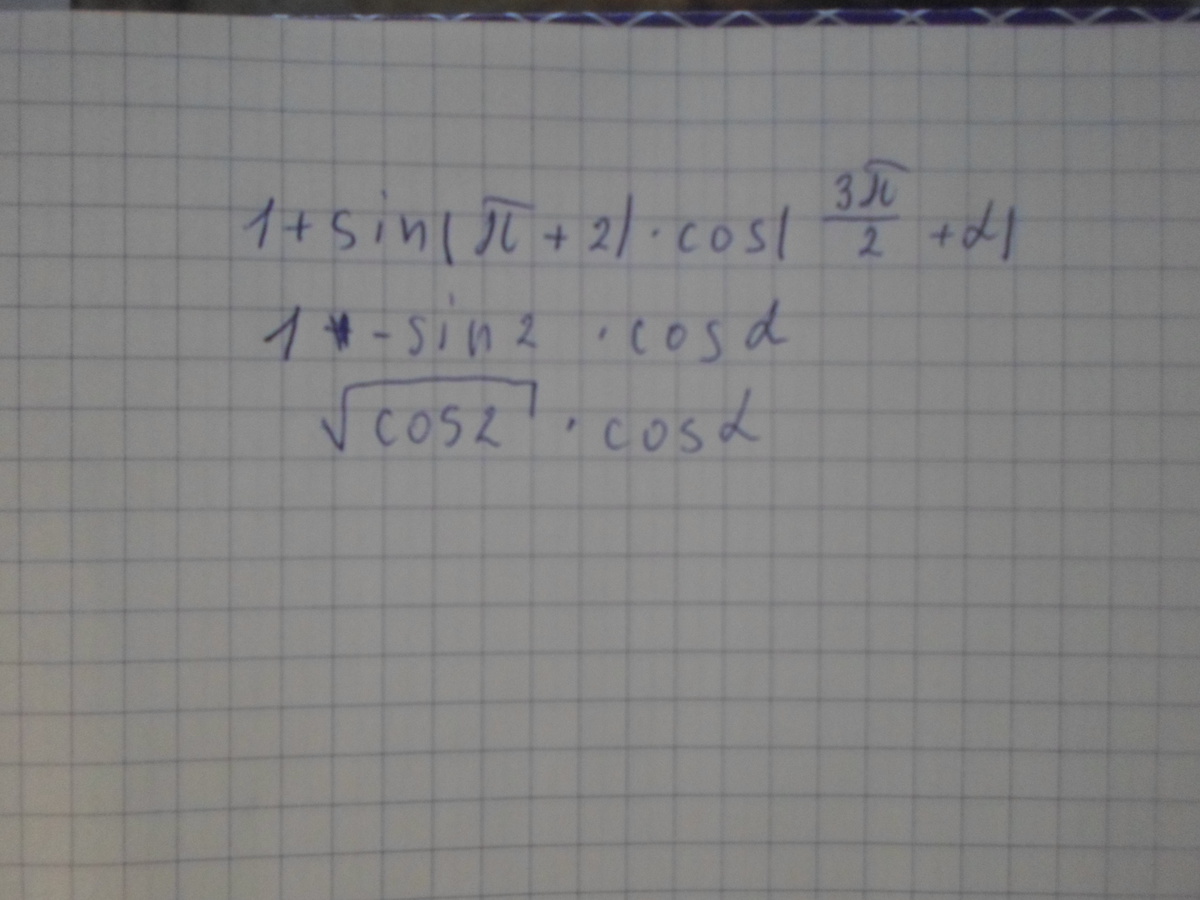 1 + sin(π + 2) · cos(3π/2 + α)
1 - sin 2 · cos α
√cos 2 · cos α